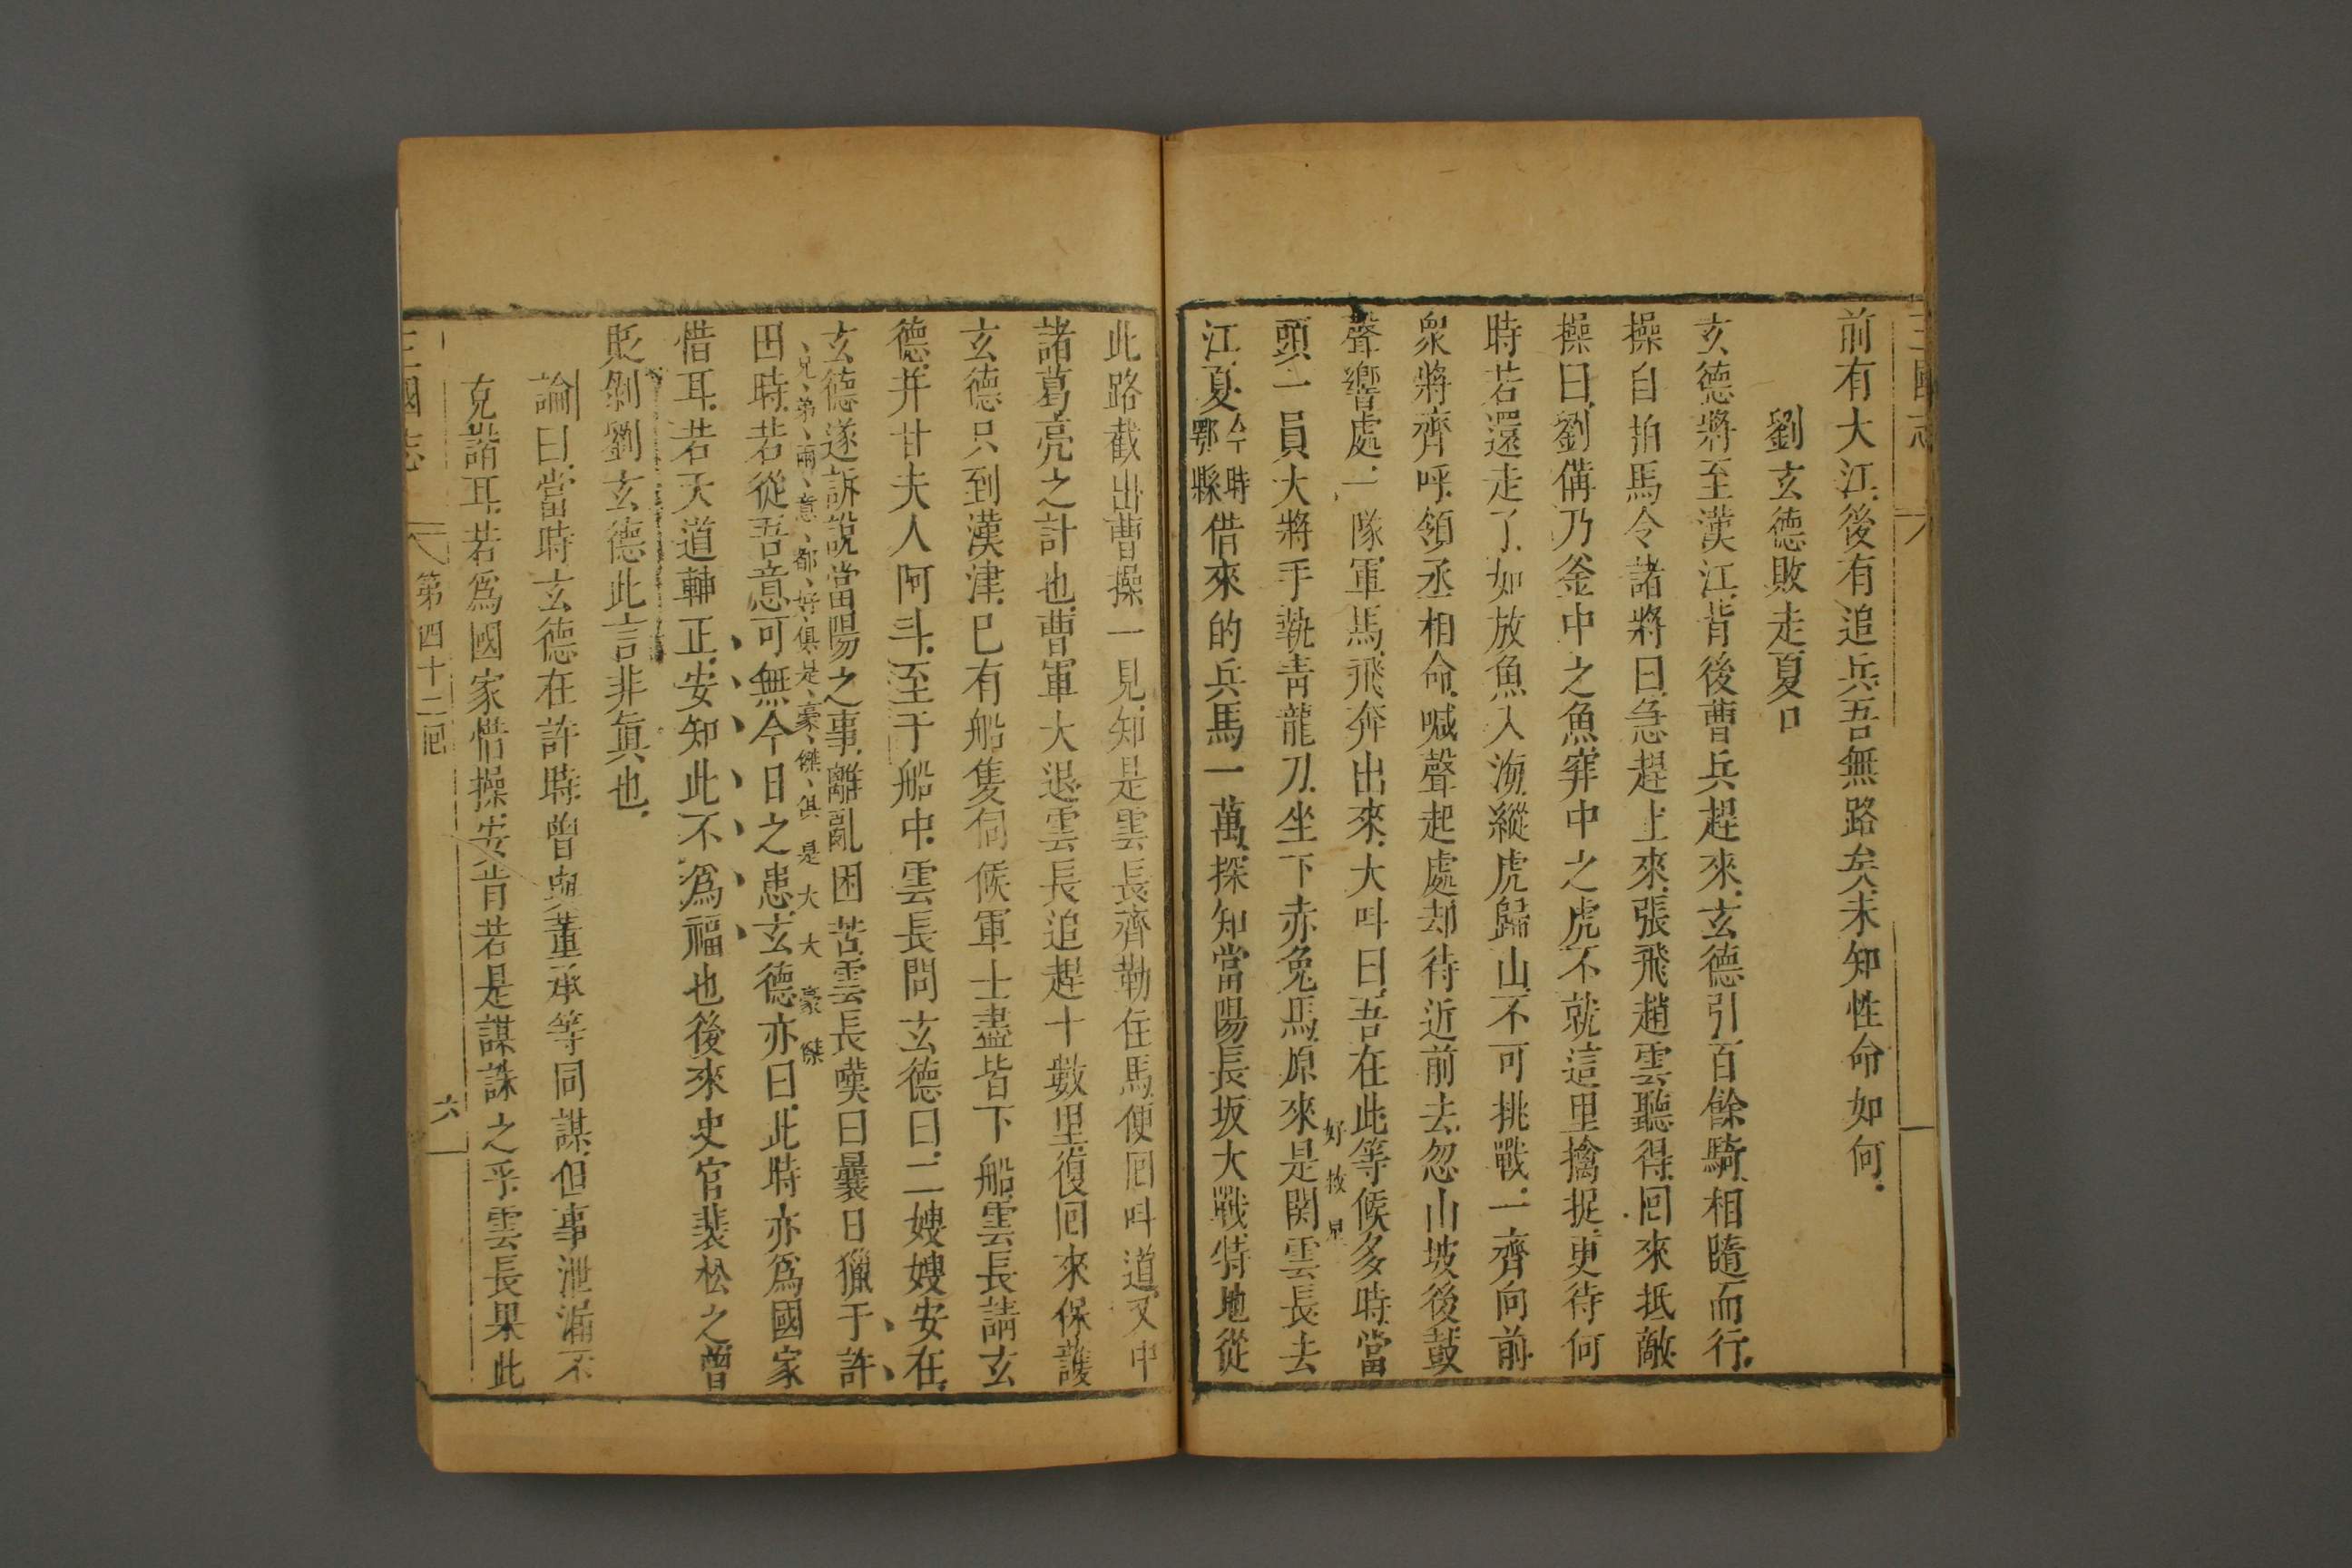 三國志
前有大江後有追兵吾無路矣未知性命如何
劉玄德敗走夏口
玄德將至漢江背後曹兵趕來玄德引百餘騎相隨而行
操自拍馬令諸將曰急趕上來張飛趙雲聽得回來抵敵
操曰劉備乃釜中之魚穽中之虎不就這里擒捉更待何
時若還走了如放魚入海縱虎歸山不可挑戰一齊向前
衆將齊呼領丞相命喊聲起處却待近前去忽山坡後鼓
聲響處一隊軍馬飛奔出來大呌曰吾在此等候多時當
好救星
頭一員大將手執青龍刀坐下赤兔馬原來是関雲長去
江夏今時鄂縣借來的兵馬一萬探知當陽長坂大戰特地從
此路截出曹操一見知是雲長齊勒住馬便囘呌道又中
諸葛亮之計也曹軍大退雲長追趕十數里復回來保護
玄德只到漢津已有船隻伺候軍士盡皆下船雲長請玄
德并甘夫人阿斗至于船中雲長問玄德曰二嫂嫂安在
玄德遂訴說當陽之事離亂困苦雲長嘆曰曩日獵于許
兄弟兩意都好俱是豪傑俱是大大豪傑
田時若從吾意可無今日之患玄德亦曰此時亦爲國家
惜耳若天道輔正安知此不爲福也後來史官裴松之曾
貶剝劉玄德此言非眞也
論曰當時玄德在許時曾與董承等同謀但事泄漏不
克諧耳若爲國家惜操安肯若是謀誅之乎雲長果此
三國志 第四十二囘 六